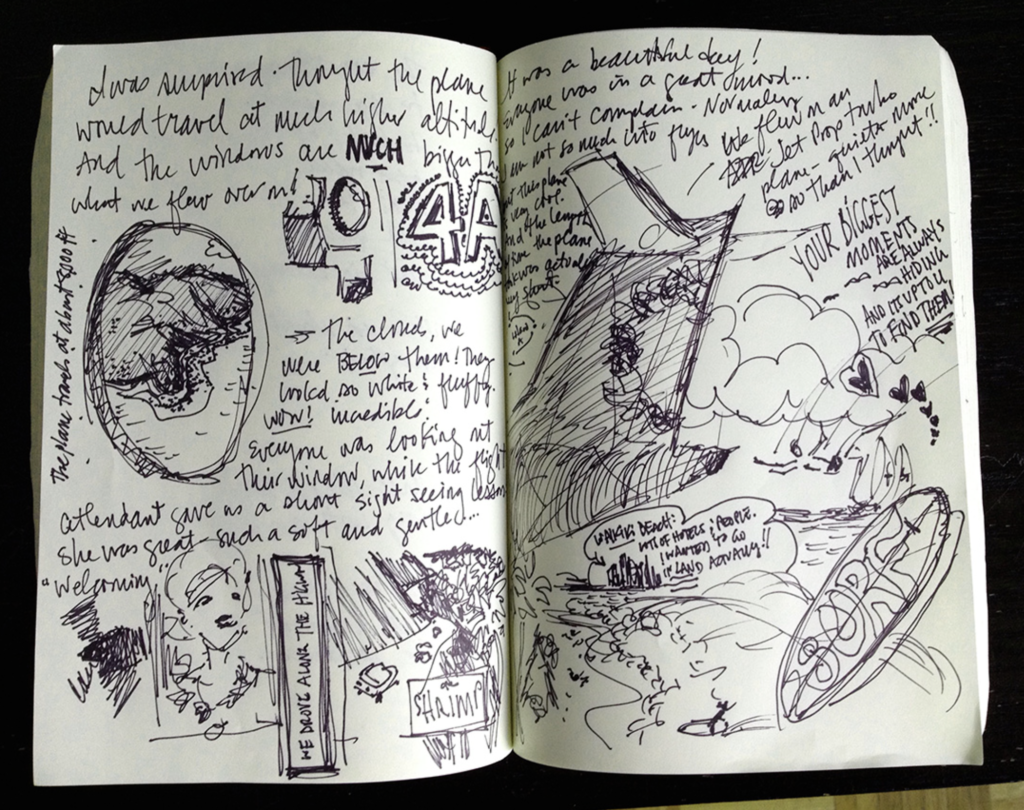 I was surprised. Thought the plane
would travel at much higher altitude
And the windows are MUCH bigger than
what we flew over in!
4A
The plane travels at about 15,000 ft
The clouds, we
were BELOW them! They
looked so white & fluffy.
WOW! incredible!
Everyone was looking out
their window, while the flight
attendant gave us a short sight seeing lesson
She was great - such a soft and gentle...
"Welcoming...
WE DROVE ALONG THE
SHRIMP
It was a beautiful day!
Everyone was in a great mood...
so I can't complain - Normally
I am not so much into
We flew in an
Jet Prop turbo
plane - quieter more
so than I thought!!
but the plane
very
And the length
the plane
was actually
YOUR BIGGEST
MOMENTS
ARE ALWAYS
HIDING
AND IT'S UP TO YOU
TO FIND THEM
WAIKIKI BEACH:
LOTS OF HOTELS & PEOPLE.
I WANTED TO GO
LAND ACTUALLY!!